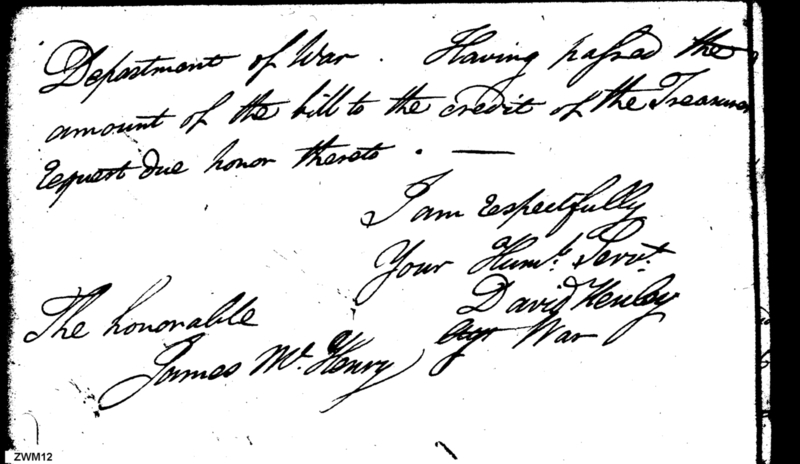 Department of War . Having passed the
amount of the bill to the credit of the Treasurer
request due honor thereto . —
I am respectfully
Your Humb. Servt.
David Henley
Agt War
The honorable
James Mc. Henry
ZWM12